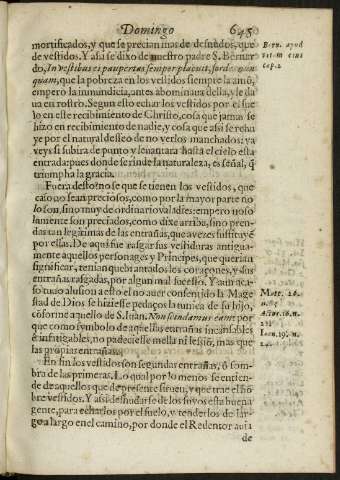 Domingo 645
mortificados, y que se precian mas de desnudos, que
de vestidos. Y asi se dixo de nuestro padre S. Bernar
do, In vestibus ei paupertas semper placuit, sordes nun
quam, que la pobreza en los vestidos siempre la amò,
empero la inmundicia, antes abominaua della, y le daua
ua en rostro. Segun esto echar los vestidos por el sue
lo en este recibimiento de Christo, cosa que jamas se
hizo en recibimiento de nadie, y cosa que asi se rehu
ye por el natural desseo de no verlos manchados: ya
veys si subira de punto y leuantara hasta el cielo esta
entrada: pues donde se rinde la naturaleza, es señal, q̃
triumpha la gracia.
Fuera desto no se que se tienen los vestidos, que
caso no sean preciosos, como por la mayor parte no
lo son, sino muy de ordinario valadies: empero no so
lamente son preciados, como dixe arriba, sino pren-
das tan legitimas de las entrañas, que a vezes sustituyẽ
por ellas. De aqui fue rasgar sus vestiduras antigua-
mente aquellos personages y Principes, que querian
significar, tenian quebrantados los coraçones, y sus
entrañas rasgadas, por algun mal sucesso. Y aun aca-
so tuuo alusion a esto el no auer consentido la Mage
stad de Dios se hiziesse pedaços la tunica de su hijo,
cõforme aquello de S. Iuan, Non scindamus eam: por
que como symbolo de aquellas entrañas incansables
è infatigables, no padeciesse mella ni lesiõ, mas que
las propias entrañas.
En fin los vestidos son segundas entrañas, ò som-
bra de las primeras. Lo qual por lo menos se entien-
de de aquellos que de presente siruen, y que trae el hõ
bre vestidos. Y asi desnudarse de los suyos esta buena
gente, para echarlos por el suelo, y tenderlos de lar-
go a largo en el camino, por donde el Redentor auia
de
Bern. apud
cap. 2
Matt. 26.
Actor. 16. n.
Ioan. 19. n.